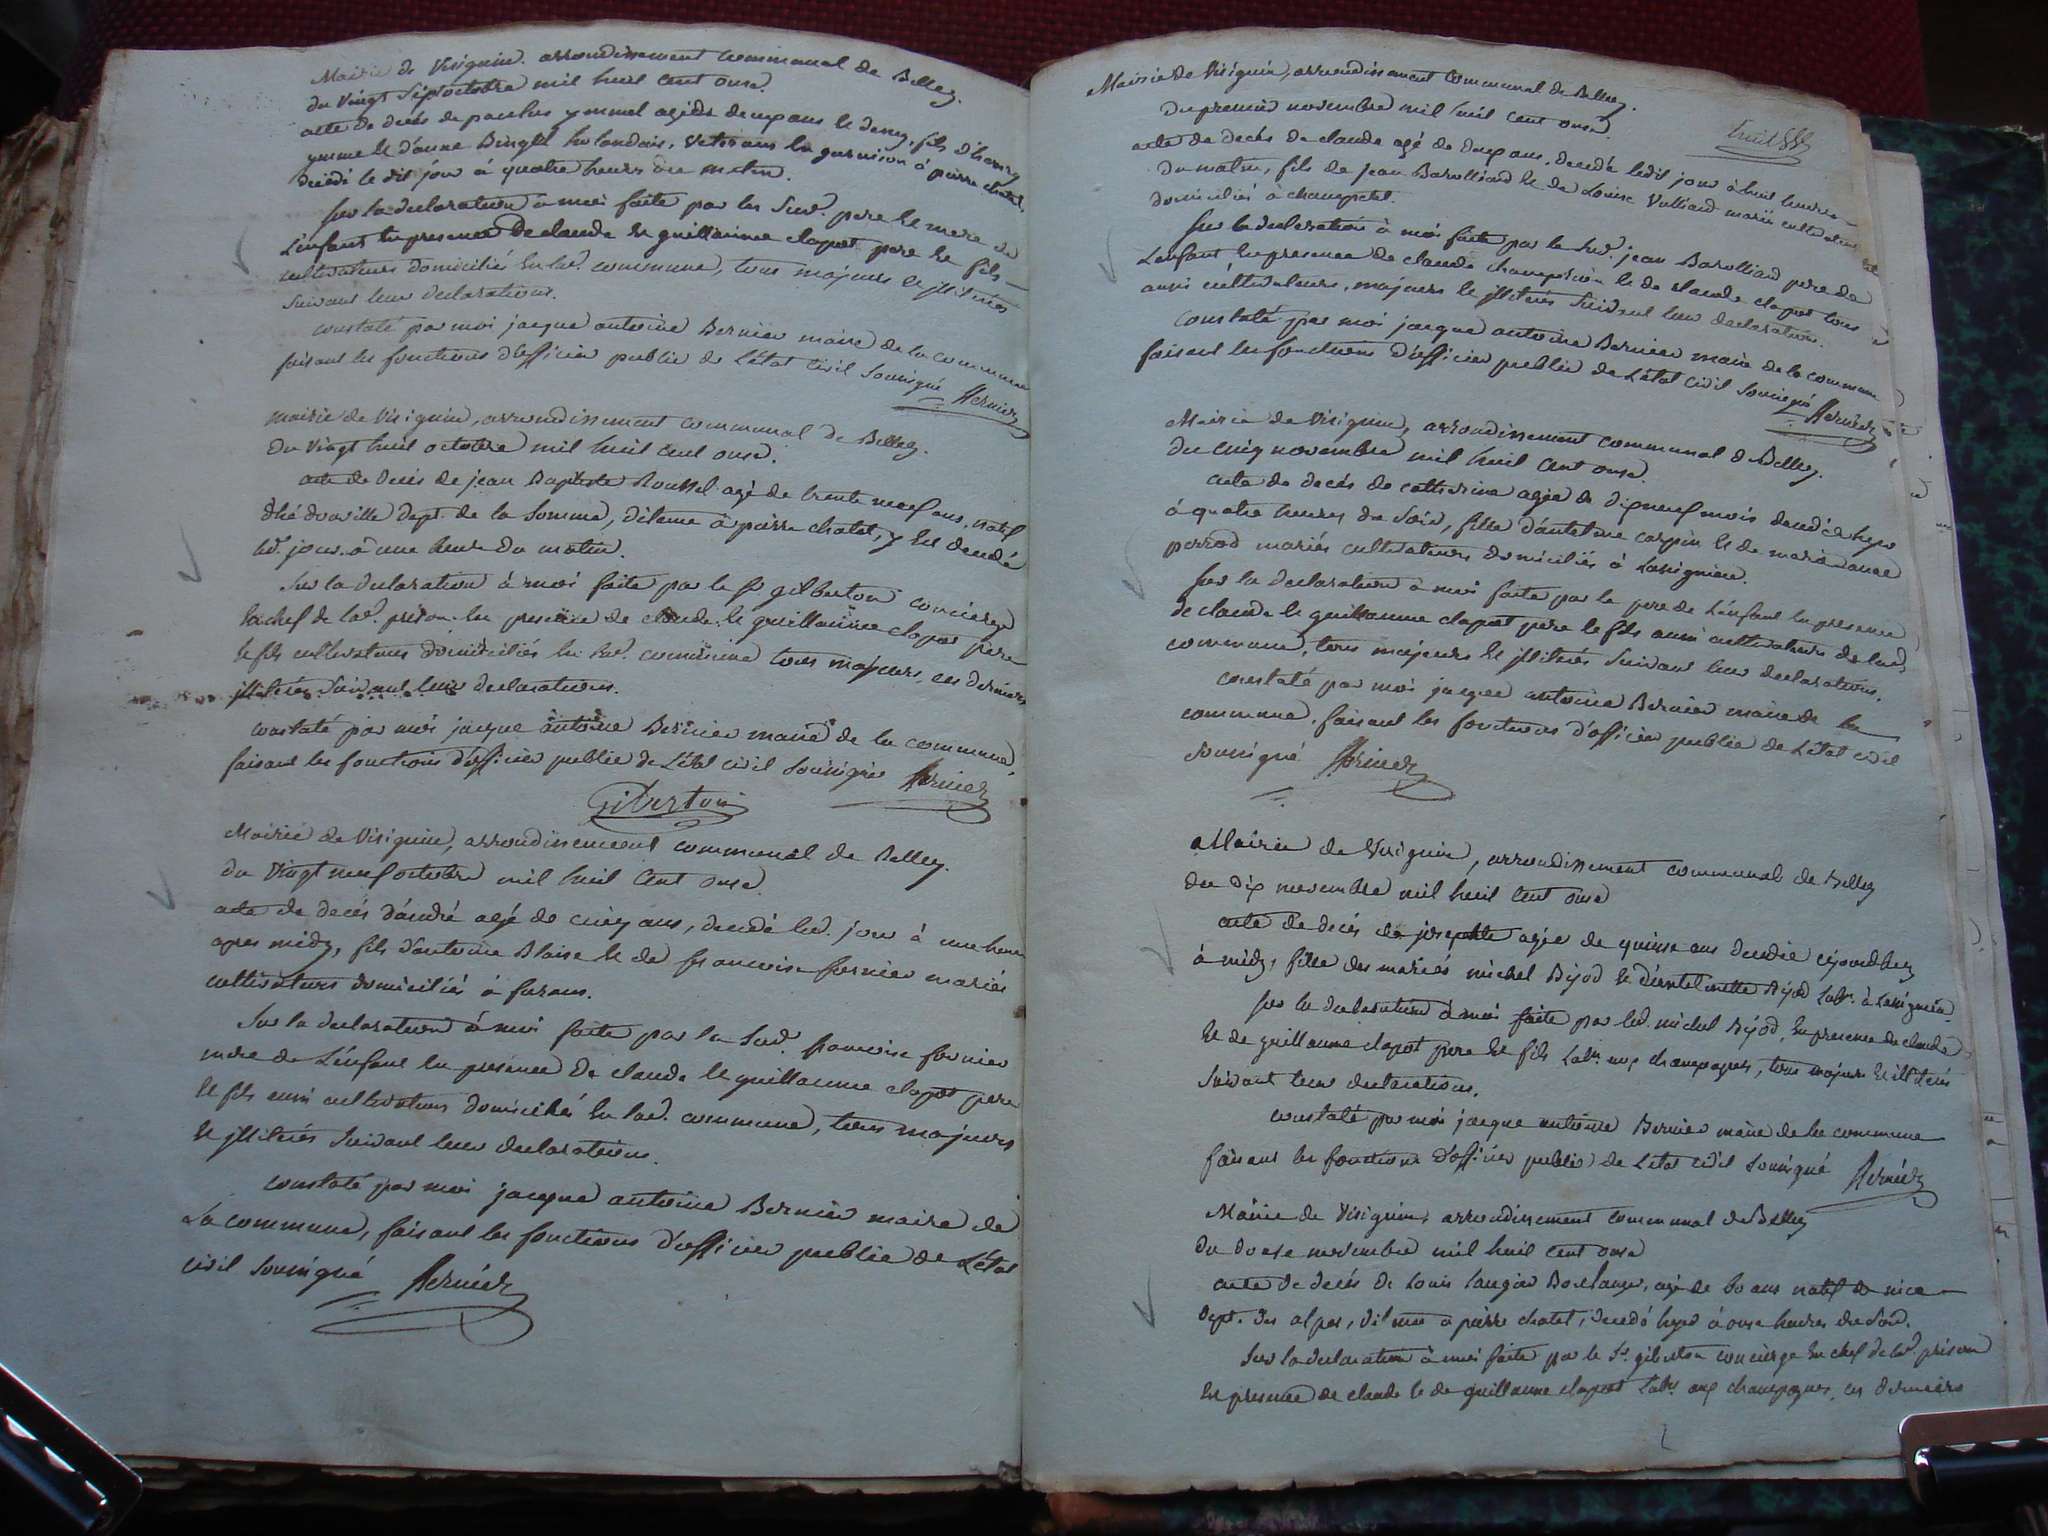 Mairie de Virignin, arrondissement communal de Belley.
du vingt sept octobre mil huit cent onse.
acte de décès de paulus ymmel agé de deux ans et demy, fils d'henry
ymme et d'anne Bingle holandais, veterans en garnison à pierre chatel,
décédé le dit jour à quatre heures du matin.
sur la déclaration à moi faite par les sud. pere et mere de
l'enfant en presence de claude et guillaume clapot pere et fils
cultivateurs domiciliés en lad. commune, tous majeurs et illiterés
suivant leur declarations.
constaté par moi jacque antoine Bernier maire de la commune
faisant les fonctions d'officier public de l'état civil soussigné Bernier
mairie de Virignin, arrondissement communal de Belley.
du vingt huit octobre mil huit cent onse.
acte de décès de jean Baptiste Roussel agé de trente neuf ans, natif
d'hédouville dept. de la Somme, détenu à pierre chatel, y est décédé
led. jour à une heure du matin.
sur la declaration à moi faite par le sr. gilberton concierge
en chef de lad. prison en presence de claude et guillaume clapot pere
et fils cultivateurs domiciliés en lad. commune tous majeurs, ces derniers
illiterés suivant leur declarations.
constaté par moi jacque antoine Bernier maire de la commune,
faisant les fonctions d'officier public de l'état civil soussigné Bernier
Giberton
Mairie de Virignin, arrondissement communal de Belley.
du vingt neuf octobre mil huit cent onse.
acte de décès d'andré agé de cinq ans, décédé led. jour à une heure
apres midy, fils d'antoine Blaise et de francoise fornier mariés
cultivateurs domiciliés à furans.
Sur la declaration à moi faite par la sud. francoise fornier
mere de l'enfant en présence de claude et guillaume clapot pere
et fils aussi cultivateurs domiciliés en lad. commune, tous majeurs
et illiterés suivant leur declarations.
constaté par moi jacque antoine Bernier maire de
la commune, faisant les fonctions d'officier public de l'état
civil soussigné Bernier
Mairie de Virignin, arrondissement communal de Belley.
du premier novembre mil huit cent onse.
acte de décès de claude agé de deux ans, décédé ledit jour à huit heures
du matin, fils de jean Barolliard et de Louise Vulliard mariés cultivateurs
domiciliés à champetel.
sur la declaration à moi faite par le sud. jean Barolliard pere de
l'enfant en presence de claude et de claude clapot tous
aussi cultivateurs, majeurs et illiterés suivant leur declarations.
constaté par moi jacque antoine Bernier maire de la commune
faisant les fonctions d'officier public de l'état civil soussigné Bernier
Mairie de Virignin, arrondissement communal de Belley.
du cinq novembre mil huit cent onse.
acte de décès de catherine agée de dix neuf mois décédée hyer
à quatre heures du soir, fille d'antelme carpin et de marianne
perrod mariés cultivateurs domiciliés à Lassignieu.
sur la declaration à moi faite par le pere de l'enfant en presence
de claude et guillaume clapot pere et fils aussi cultivateurs de lad.
commune, tous majeurs et illiterés suivant leur declarations.
constaté par moi jacque antoine Bernier maire de la
commune, faisant les fonctions d'officier public de l'état civil
soussigné Bernier
Mairie de Virignin, arrondissement communal de Belley
du dix novembre mil huit cent onse
acte de décès de josephte agée de quinse ans décédée ejourdhuy
à midy, fille des mariés michel Bijod et d'antelmette Bijod labr. à Lassignieu.
sur la declaration à moi faite par led. michel Bijod, en presence de claude
et de guillaume clapot pere et fils labrs aux champagnes, tous majeurs et illiterés
suivant leur declarations.
constaté par moi jacque antoine Bernier maire de la commune
faisant les fonctions d'officier public de l'état civil soussigné Bernier
Mairie de Virignin, arrondissement communal de Belley
du douse novembre mil huit cent onse
acte de décès de Louis Laugier Boulanger, agé de 60 ans natif de nice
dept. des alpes, détenu à pierre chatel, décédé hyer à onse heures du soir.
Sur la declaration à moi faite par le Sr. giberton concierge en chef de lad. prison
en presence de claude et de guillaume clapot labrs aux champagnes, ces derniers